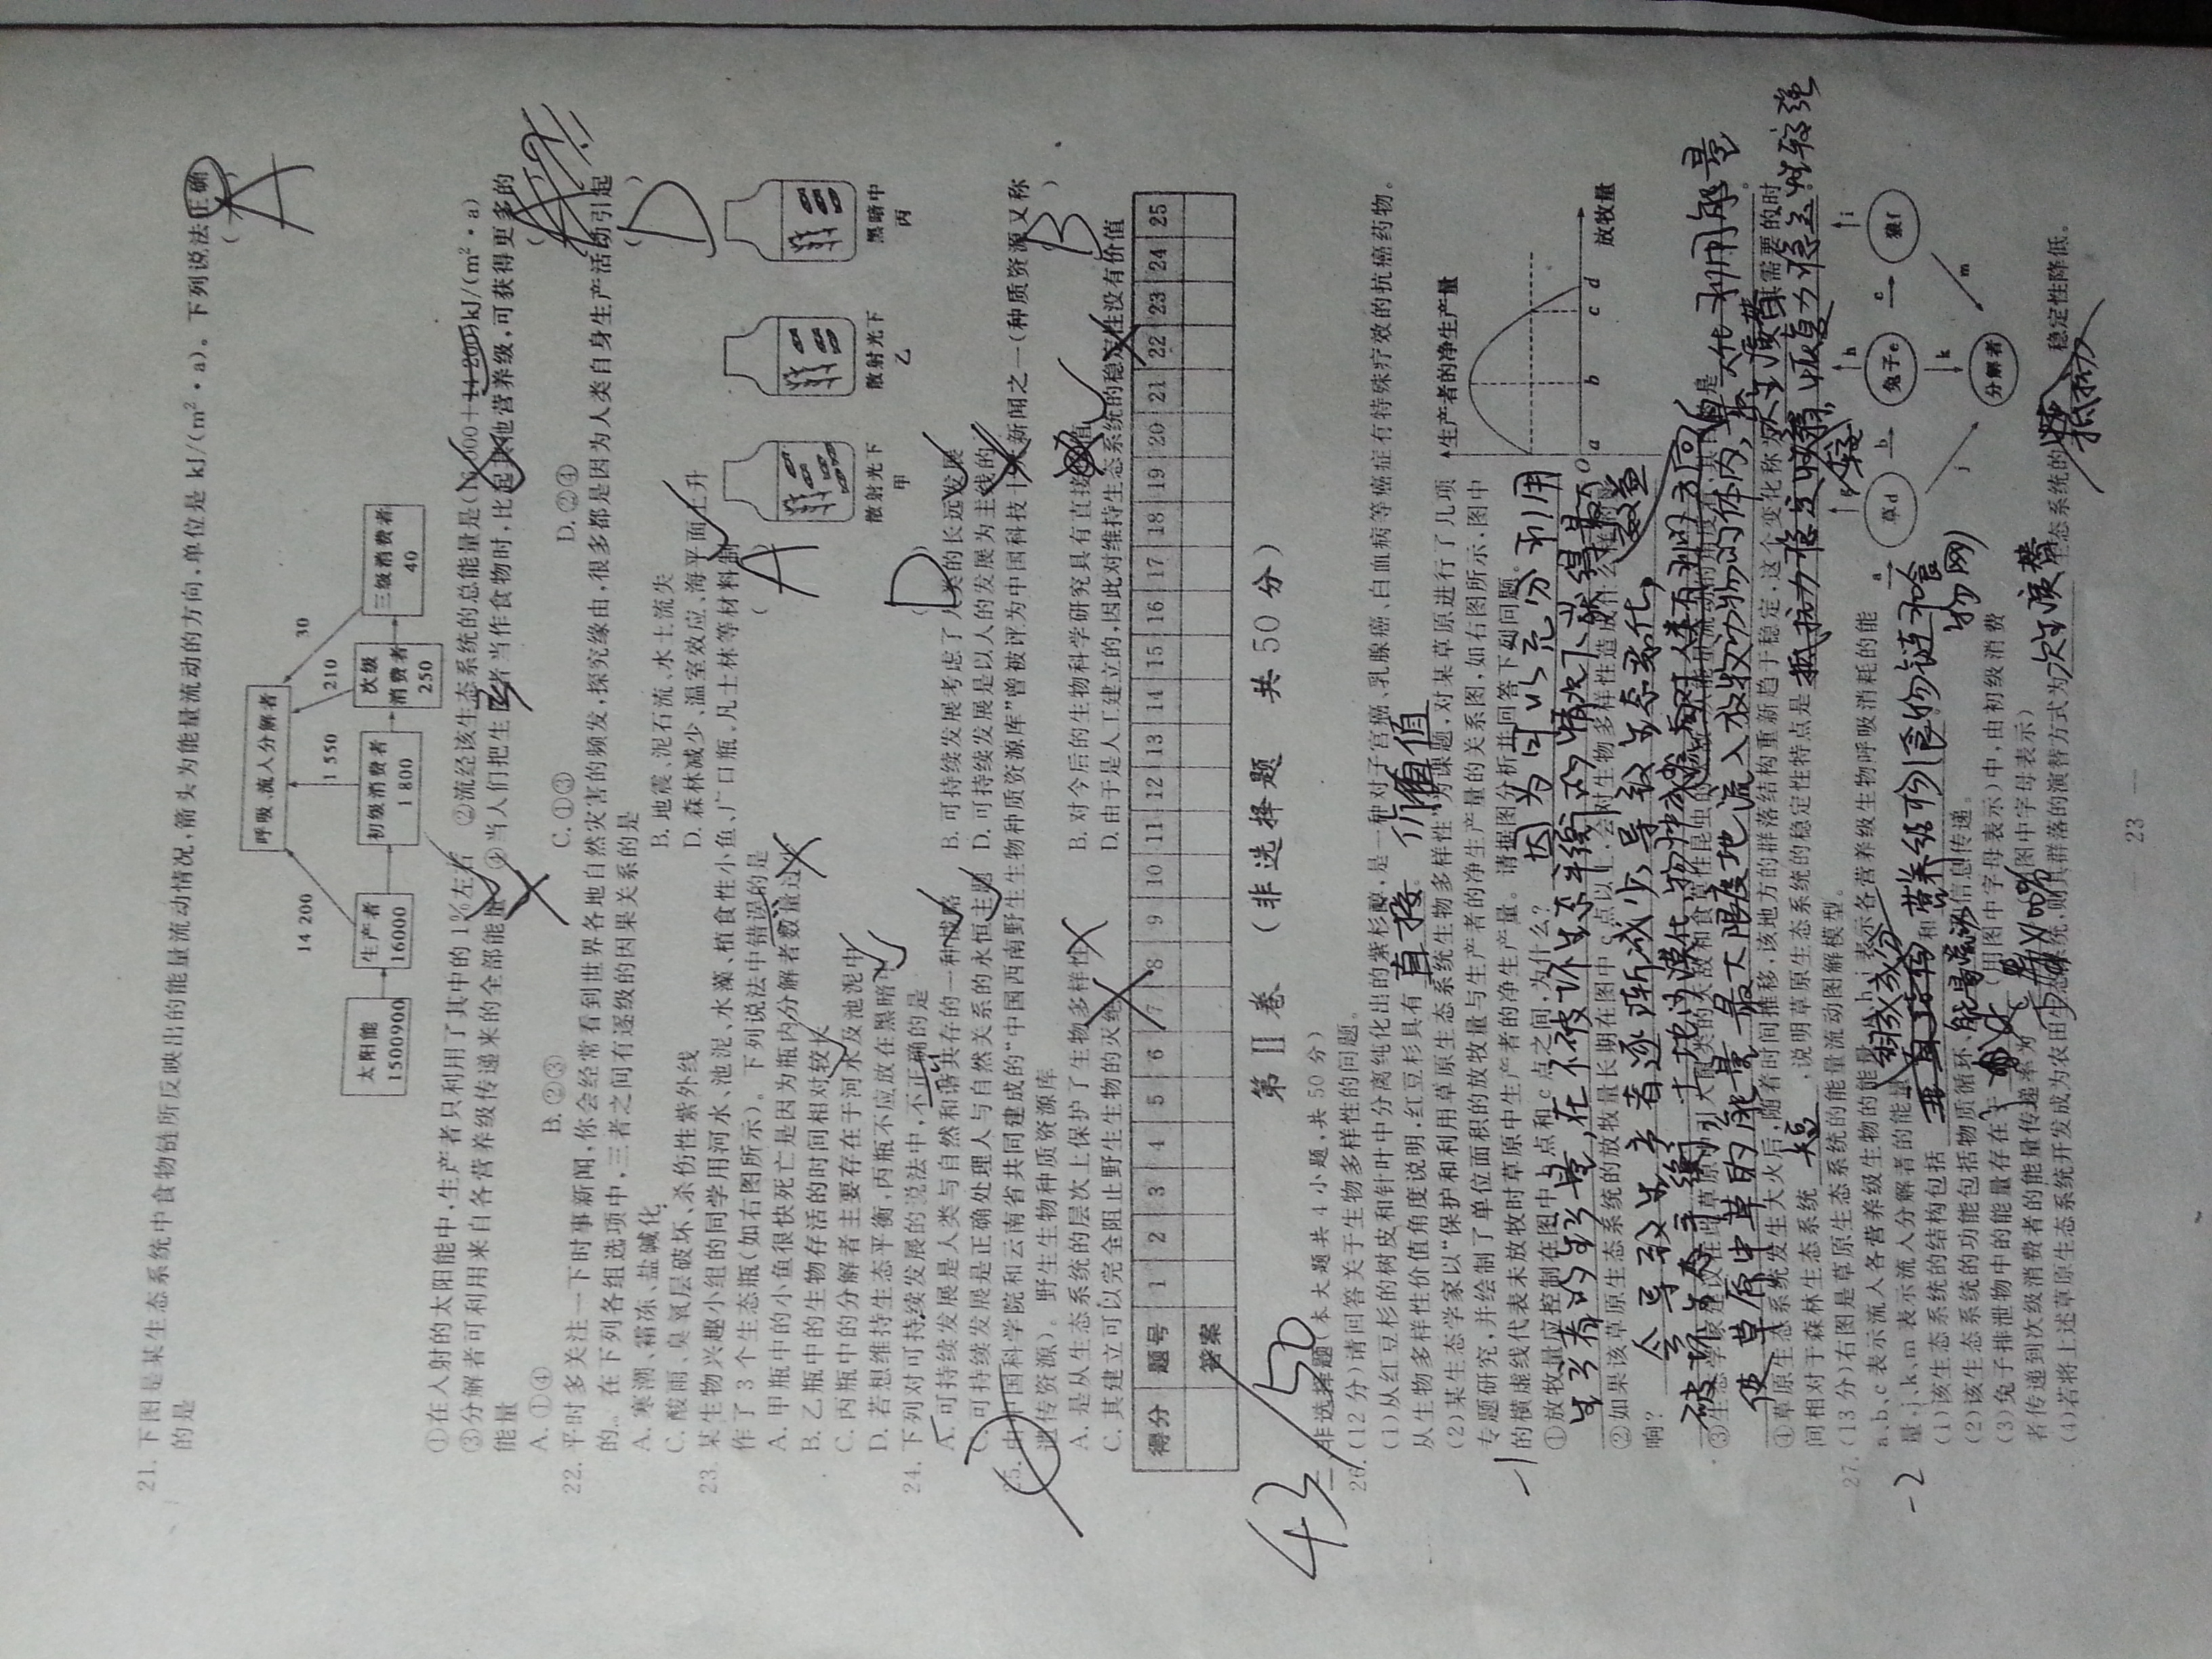 21. 下图是某生态系统中食物链所反映出的能量流动情况,箭头为能量流动的方向,单位是 kJ/(m²·a)。下列说法正确
的是 ( )
A
呼吸、流入分解者
14 200
1 550
210
30
太阳能 1500900
生产者 16000
初级消费者 1 800
次级消费者 250
三级消费者 40
①在入射的太阳能中,生产者只利用了其中的 1%左右 ②流经该生态系统的总能量是(16 000+14 200)kJ/(m²·a)
③分解者可利用来自各营养级传递来的全部能量 ④当人们把生产者当作食物时,比起其他营养级,可获得更多的
能量
A. ①④ B. ②③ C. ①③ D. ②④
22. 平时多关注一下时事新闻,你会经常看到世界各地自然灾害的频发,探究缘由,很多都是因为人类自身生产活动引起
的。在下列各组选项中,三者之间有逐级的因果关系的是 ( )
D
A. 寒潮、霜冻、盐碱化 B. 地震、泥石流、水土流失
C. 酸雨、臭氧层破坏、杀伤性紫外线 D. 森林减少、温室效应、海平面上升
23. 某生物兴趣小组的同学用河水、池泥、水藻、植食性小鱼、广口瓶、凡士林等材料制
作了 3 个生态瓶(如右图所示)。下列说法中错误的是 ( )
A
A. 甲瓶中的小鱼很快死亡是因为瓶内分解者数量过少
B. 乙瓶中的生物存活的时间相对较长
C. 丙瓶中的分解者主要存在于河水及池泥中
D. 若想维持生态平衡,丙瓶不应放在黑暗中
散射光下 散射光下 黑暗中
甲 乙 丙
24. 下列对可持续发展的说法中,不正确的是 ( )
D
A. 可持续发展是人类与自然和谐共存的一种战略 B. 可持续发展考虑了人类的长远发展
C. 可持续发展是正确处理人与自然关系的永恒主题 D. 可持续发展是以人的发展为主线的
25. 由中国科学院和云南省共同建成的“中国西南野生生物种质资源库”曾被评为中国科技十大新闻之一(种质资源又称
遗传资源)。野生生物种质资源库 ( )
B
A. 是从生态系统的层次上保护了生物多样性 B. 对今后的生物科学研究具有直接价值
C. 其建立可以完全阻止野生生物的灭绝 D. 由于是人工建立的,因此对维持生态系统的稳定性没有价值
得分 题号 1 2 3 4 5 6 7 8 9 10 11 12 13 14 15 16 17 18 19 20 21 22 23 24 25
答案
第Ⅱ卷 (非选择题 共 50 分)
43/50
二、非选择题(本大题共 4 小题,共 50 分)
26. (12 分)请回答关于生物多样性的问题。
(1)从红豆杉的树皮和针叶中分离纯化出的紫杉醇,是一种对子宫癌、乳腺癌、白血病等癌症有特殊疗效的抗癌药物。
从生物多样性价值角度说明,红豆杉具有 直接 价值
(2)某生态学家以“保护和利用草原生态系统生物多样性”为课题,对某草原进行了几项
专题研究,并绘制了单位面积的放牧量与生产者的净生产量的关系图,如右图所示,图中
的横虚线代表未放牧时草原中生产者的净生产量。请据图分析并回答下列问题。
-1
生产者的净生产量
O a b c d
放牧量
①放牧量应控制在图中 b 点和 c 点之间,为什么? 因为可以充分利用
生产者的生产量,在不破坏生态平衡的情况下获得最大
效益
②如果该草原生态系统的放牧量长期在图中 c 点以上,会对生物多样性造成什么样的影
响? 会导致生产者逐渐减少,导致生态恶化,
破坏生态平衡,土地沙漠化,物种减少,
③生态学家建议在此草原中引入鼠类的天敌和食草性昆虫的天敌,从能量流动的角度看,其目的是
使草原中草的能量最大限度地流入放牧动物的体内,最大化利用能量
④草原生态系统发生大火后,随着时间推移,该地方的群落结构重新趋于稳定,这个变化称为 次生演替 其需要的时
间相对于森林生态系统 短 ,说明草原生态系统的稳定性特点是 抵抗力稳定性较弱,恢复力稳定性较强
27. (13 分)右图是草原生态系统的能量流动图解模型。
a、b、c 表示流入各营养级生物的能量,g、h、i 表示各营养级生物呼吸消耗的能
量,j、k、m 表示流入分解者的能量
-2
a 草d b 兔子e c 狼f
g h i
j k m
分解者
(1)该生态系统的结构包括 组成成分 和 营养结构(食物链和食
物网)
(2)该生态系统的功能包括物质循环、能量流动和信息传递。
(3)兔子排泄物中的能量存在于 j (用图中字母表示)中,由初级消费
者传递到次级消费者的能量传递率为 ×100% (用图中字母表示)
(4)若将上述草原生态系统开发成为农田生态系统,则其群落的演替方式为 次生演替 生态系统的 抵抗力 稳定性降低。
— 23 —